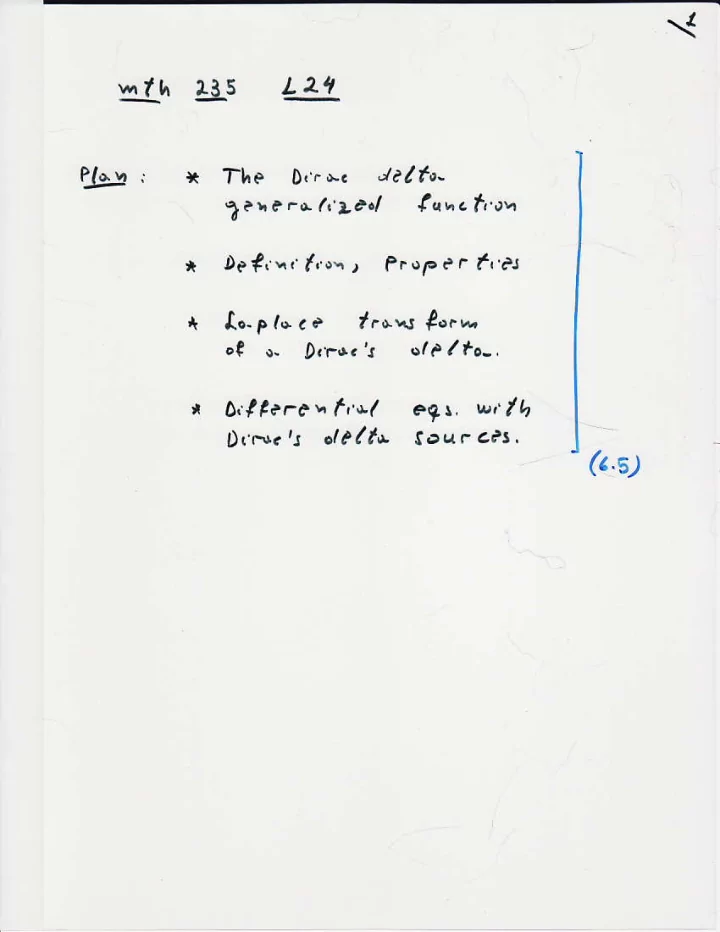 1
mth 235 L24
Plan : * The Dirac delta
generalized function
* Definition, Properties
* Laplace transform
of a Dirac's delta.
* Differential eqs. with
Dirac's delta sources.
(6.5)